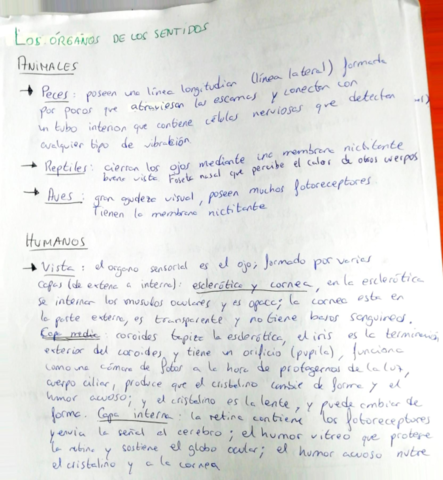 LOS ÓRGANOS DE LOS SENTIDOS
ANIMALES
→ Peces: poseen una línea longitudian (línea lateral) formada
por poros que atraviesan las escamas y conectan con
un tubo interior que contiene células nerviosas que detectan
cualquier tipo de vibración
→ Reptiles: cierran los ojos mediante una membrana nictitante
buena vista Foseta nasal que percibe el calor de otros cuerpos
→ Aves: gran agudeza visual, poseen muchos fotoreceptores
Tienen la membrana nictitante
HUMANOS
→ Vista: el organo sensorial es el ojo; formado por varias
capas (de externa a interna): esclerótica y cornea, en la esclerótica
se internan los musulos oculares y es opaca; la cornea esta en
la parte externa, es transparente y no tiene basos sanguineos.
Capa media: coroides tapiza la esclerótica, el iris es la terminación
exterior del coroides, y tiene un orificio (pupila), funciona
como una cámara de fotos a la hora de protegernos de la luz,
cuerpo ciliar, produce que el cristalino cambie de forma y el
humor acuoso; y el cristalino es la lente, y puede cambiar de
forma. Capa interna: la retina contiene los fotoreceptores
y envía la señal al cerebro; el humor vitreo que protege
la retina y sostiene el globo ocular; el humor acuoso nutre
el cristalino y a la cornea